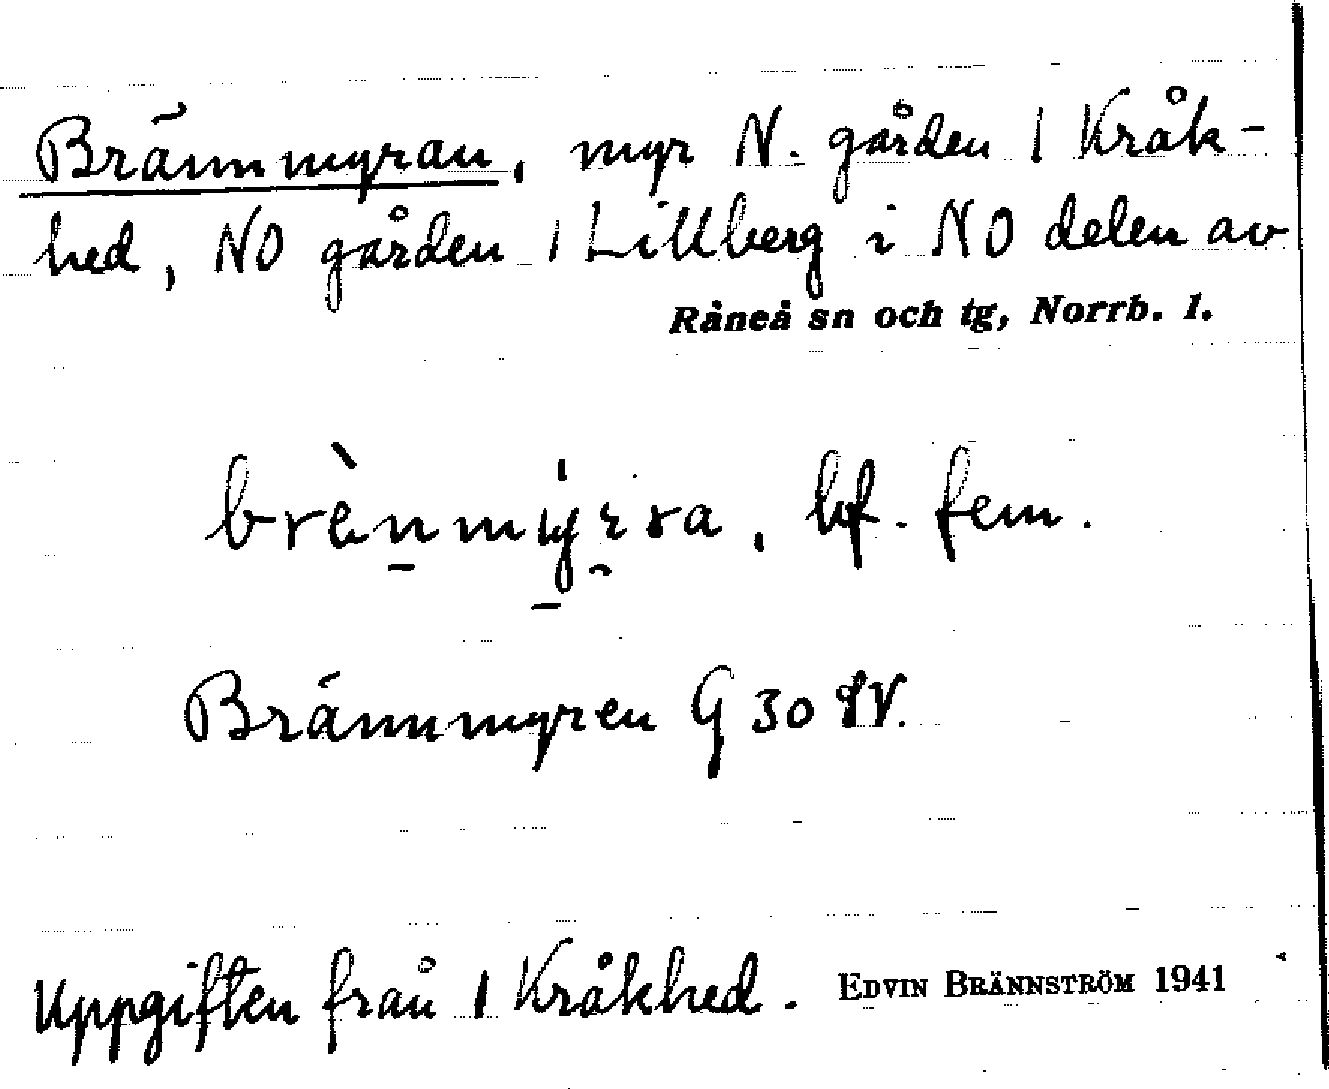 Brännmyran, myr N. gården 1 Kråk-
hed, NO gården 1 Lillberg i NO delen av
Råneå sn och tg, Norrb. l.
brènmy̱rra, bf. fem.
Brännmyren G 30 SV.
Uppgiften från 1 Kråkhed. EDVIN BRÄNNSTRÖM 1941